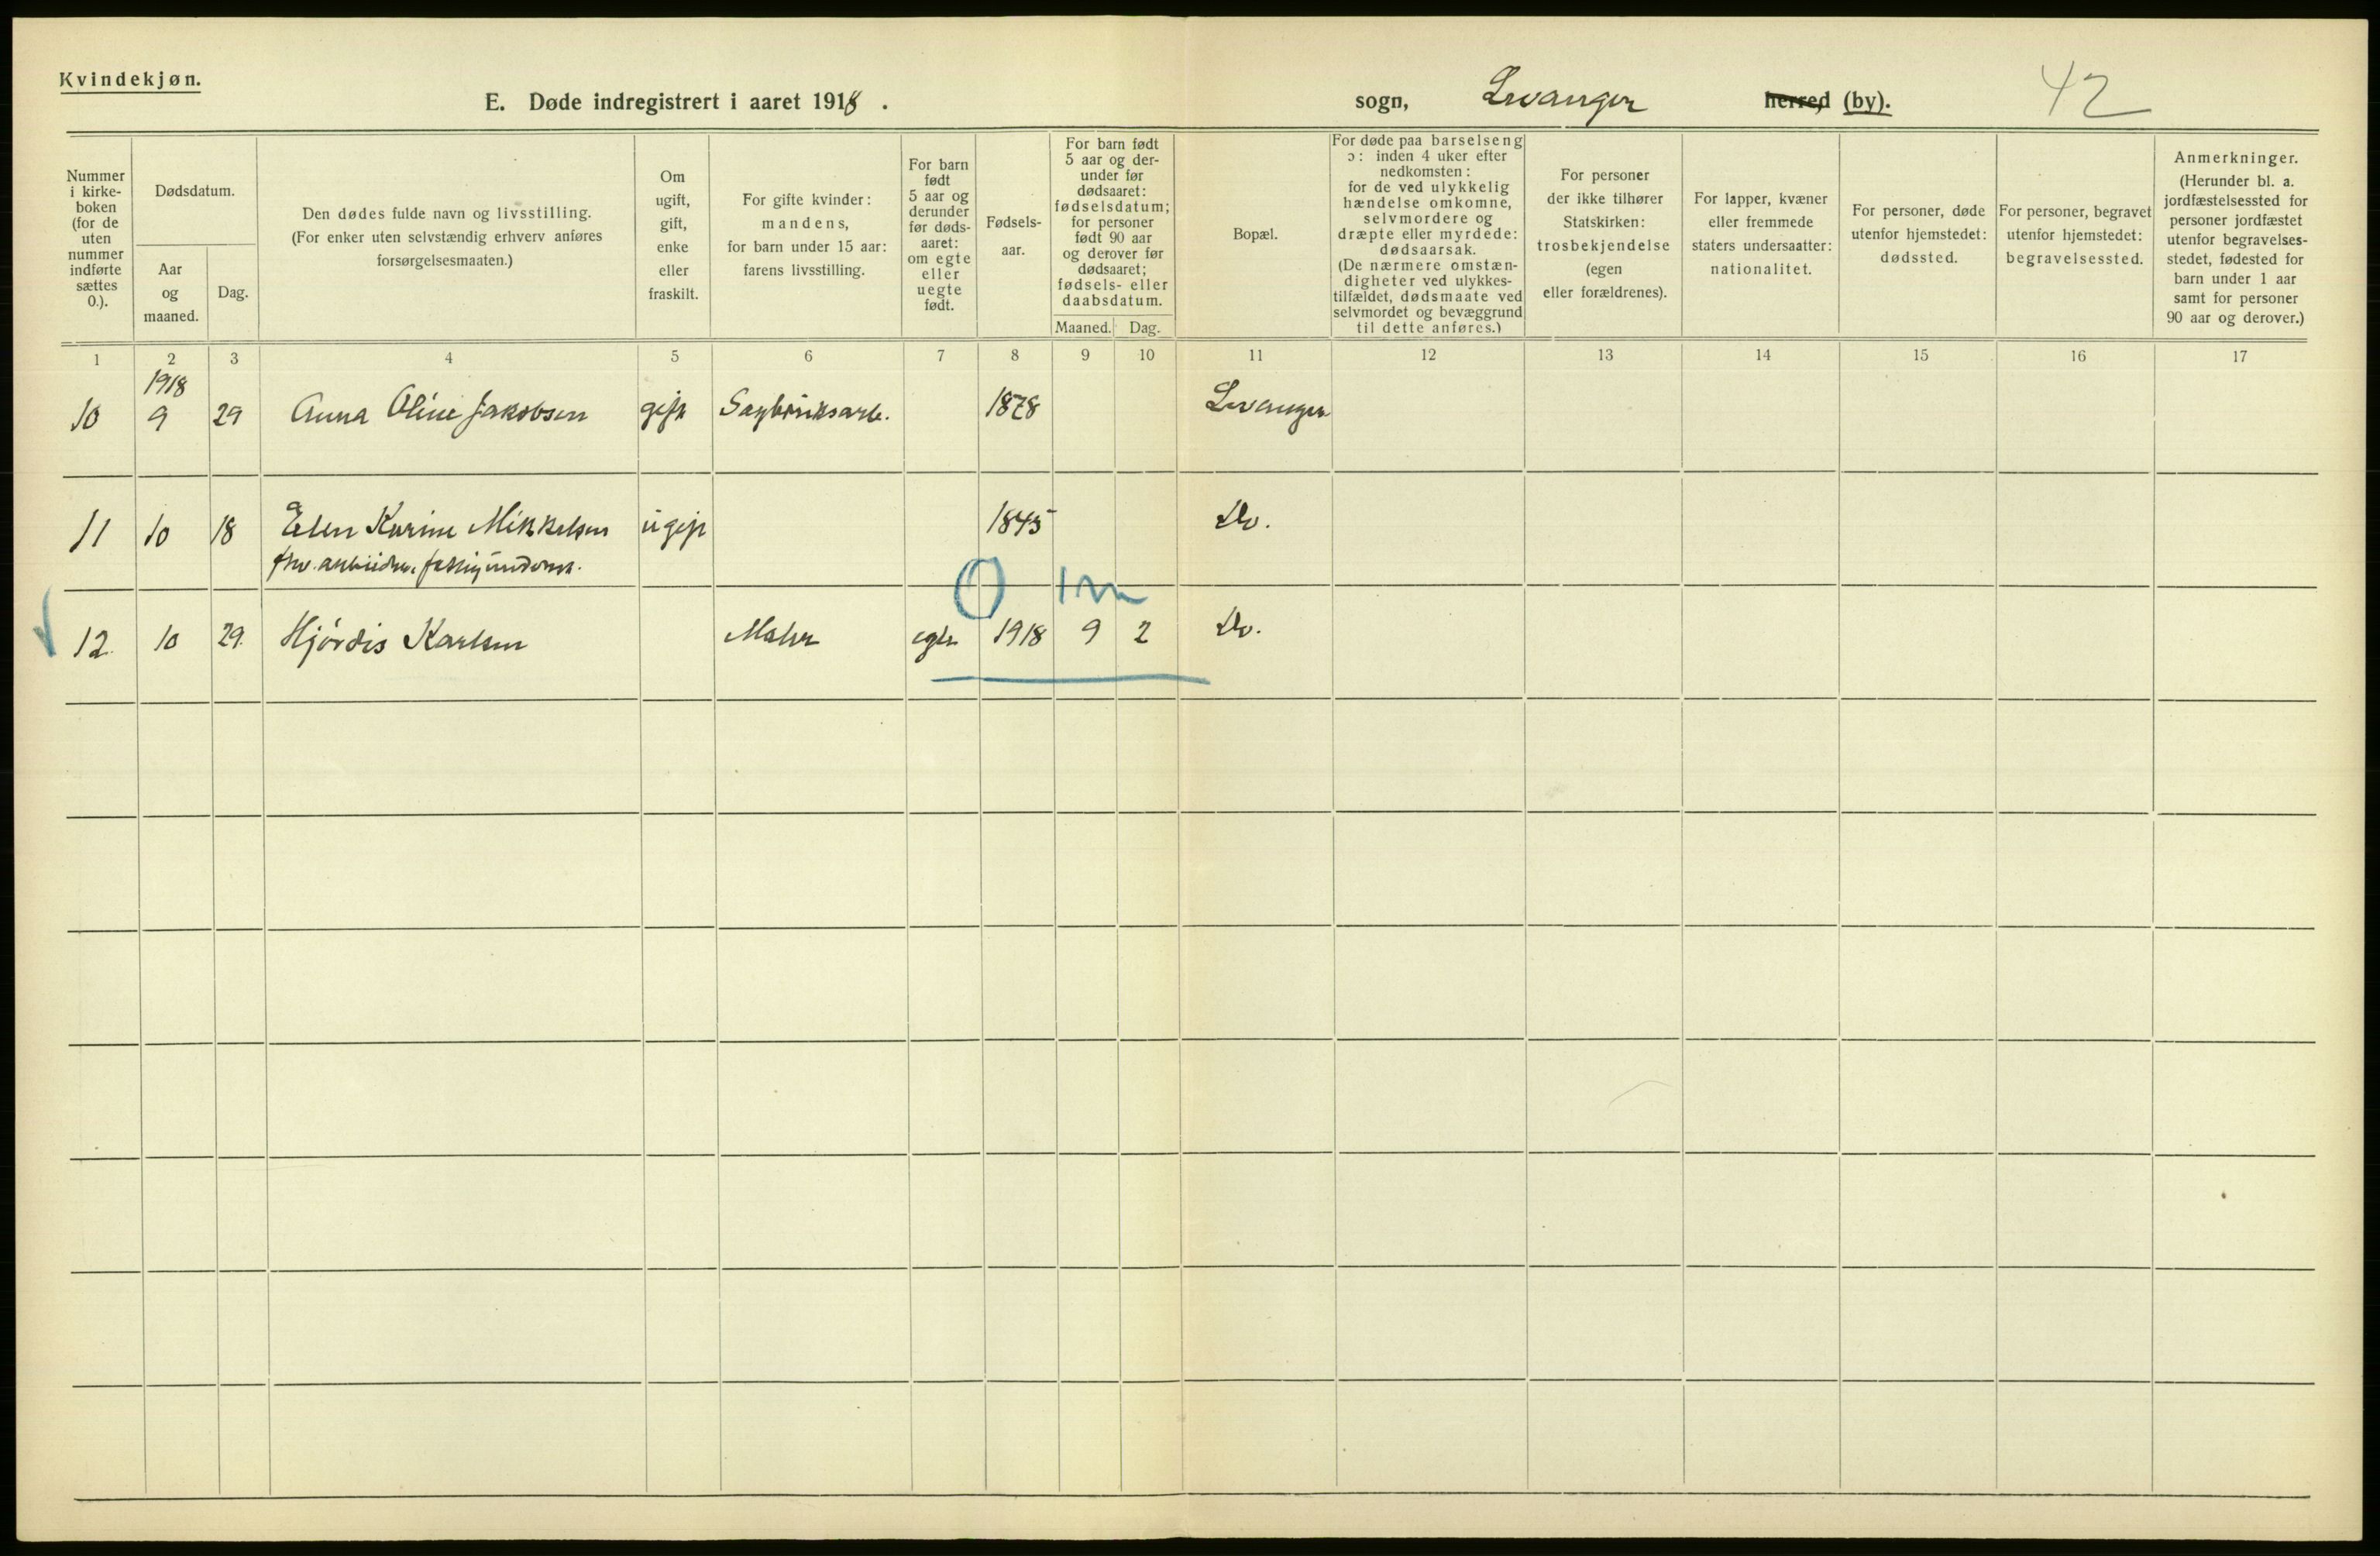 Kvindekjøn.
E. Døde indregistrert i aaret 1918.
sogn, Levanger herred (by).
42
Nummer i kirke- boken (for de uten nummer indførte sættes 0.).
Dødsdatum.
Aar og maaned.
Dag.
Den dødes fulde navn og livsstilling.
(For enker uten selvstændig erhverv anføres
forsørgelsesmaaten.)
Om ugift, gift, enke eller fraskilt.
For gifte kvinder:
mandens,
for barn under 15 aar:
farens livsstilling.
For barn født 5 aar og derunder før døds- aaret: om egte eller uegte født.
Fødsels- aar.
For barn født 5 aar og der- under før dødsaaret: fødselsdatum; for personer født 90 aar og derover før dødsaaret; fødsels- eller daabsdatum.
Maaned. Dag.
Bopæl.
For døde paa barselseng
ɔ: inden 4 uker efter
nedkomsten:
for de ved ulykkelig
hændelse omkomne,
selvmordere og
dræpte eller myrdede:
dødsaarsak.
(De nærmere omstæn-
digheter ved ulykkes-
tilfældet, dødsmaate ved
selvmordet og bevæggrund
til dette anføres.)
For personer
der ikke tilhører
Statskirken:
trosbekjendelse
(egen
eller forældrenes).
For lapper, kvæner
eller fremmede
staters undersaatter:
nationalitet.
For personer, døde
utenfor hjemstedet:
dødssted.
For personer, begravet
utenfor hjemstedet:
begravelsessted.
Anmerkninger.
(Herunder bl. a.
jordfæstelsessted for
personer jordfæstet
utenfor begravelses-
stedet, fødested for
barn under 1 aar
samt for personer
90 aar og derover.)
1 2 3 4 5 6 7 8 9 10 11 12 13 14 15 16 17
1918
10 9 29 Anna Oline Jakobsen gift Sagbruksarb. 1878 Levanger
11 10 18 Elen Karine Mikkelsen ugift 1845 Do.
fhv. arbeider. fattigunderst.
0 1m
12. 10 29. Hjørdis Karlsen Maler egte 1918 9 2 Do.